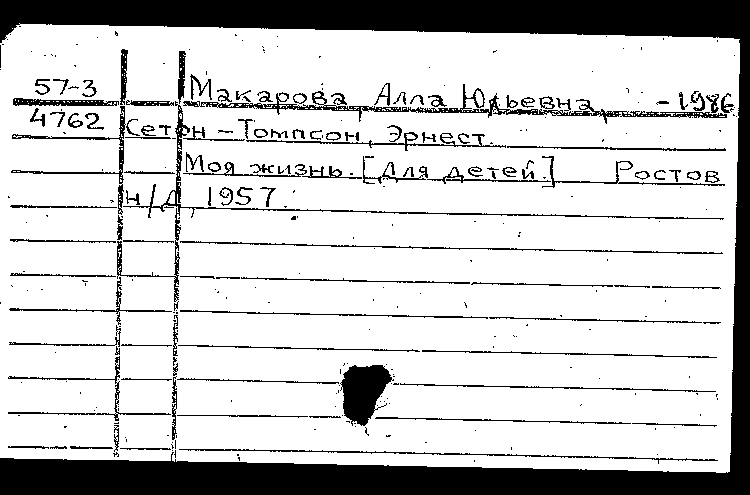 57-3 Макарова, Алла Юльевна, -1986
4762 Сетон-Томпсон, Эрнест.
Моя жизнь. [Для детей.] Ростов
н/Д, 1957.